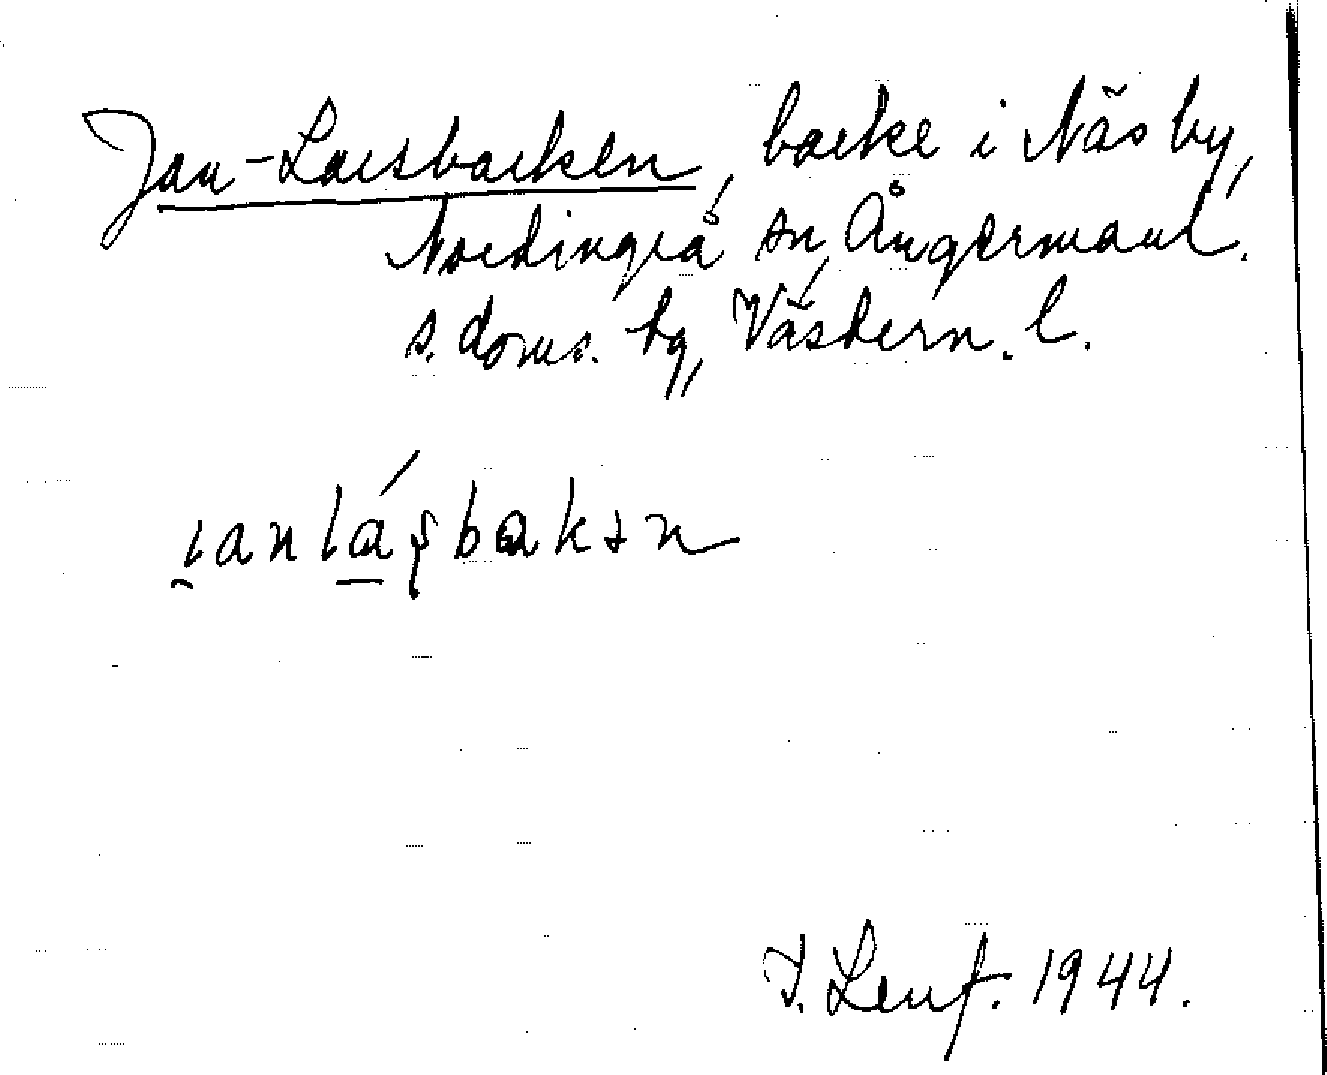 Jan-Larsbacken, backe i Näsby,
Nordingrå sn, Ångermanl.
s. doms. hg, Västern. l.
i̯anlá̱ʂbakən
J. Lenf. 1944.